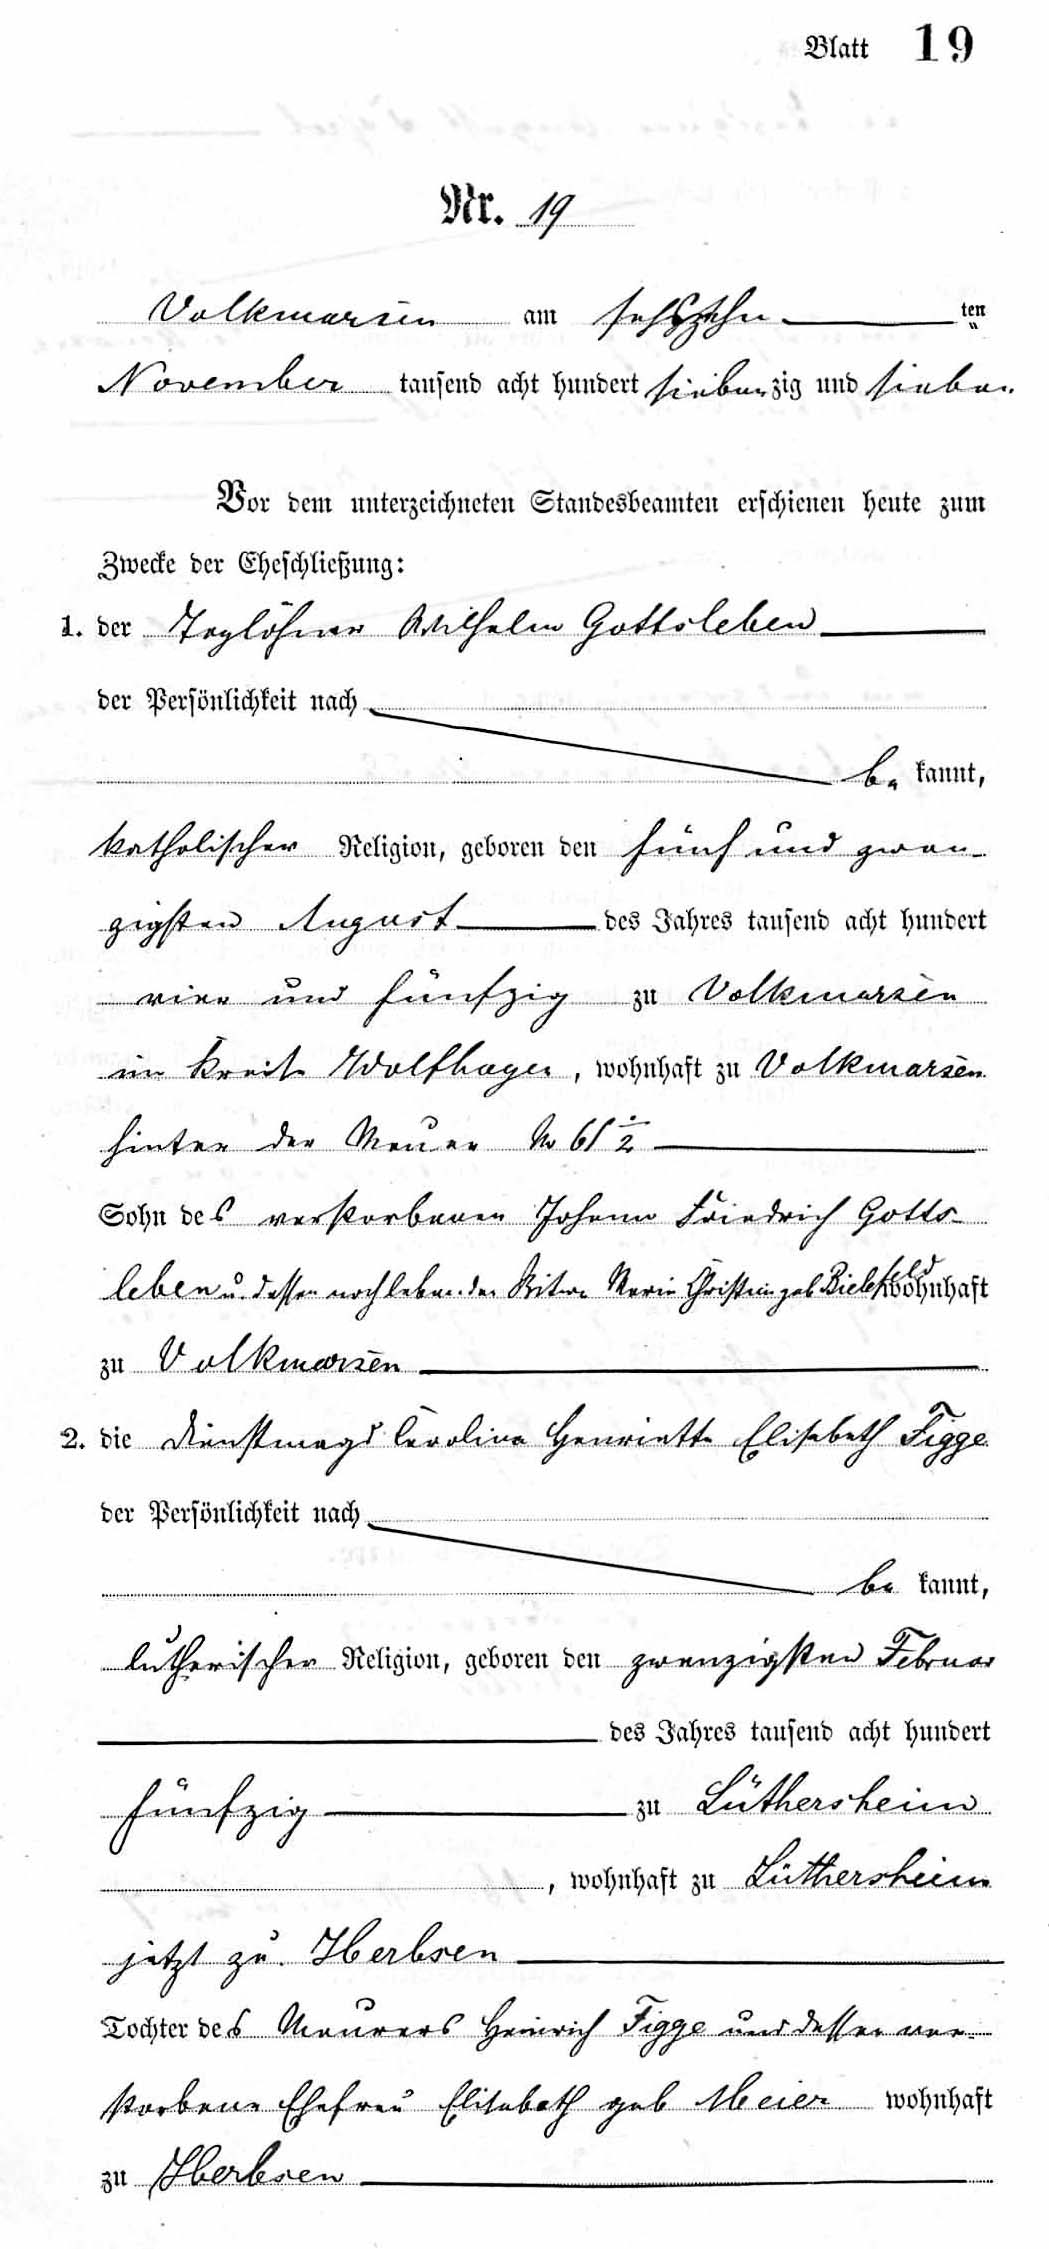 Blatt 19
Nr. 19
Volkmarsen am sechszehn ten
November tausend acht hundert siebenzig und sieben.
Vor dem unterzeichneten Standesbeamten erschienen heute zum
Zwecke der Eheschließung:
1. der Taglöhner Wilhelm Gottsleben
der Persönlichkeit nach
be kannt,
katholischer Religion, geboren den fünf und zwan-
zigsten August des Jahres tausend acht hundert
vier und fünfzig zu Volkmarsen
im Kreise Wolfhagen, wohnhaft zu Volkmarsen
hinter der Mauer No 61 1/2
Sohn des verstorbenen Johann Friedrich Gotts-
leben u. dessen noch lebenden Witwe Marie Christin geb Bielefeld wohnhaft
zu Volkmarsen
2. die Dienstmagd Caroline Henriette Elisabeth Figge
der Persönlichkeit nach
be kannt,
lutherischer Religion, geboren den zwanzigsten Februar
des Jahres tausend acht hundert
fünfzig zu Lüthersheim
, wohnhaft zu Lüthersheim
jetzt zu Herbsen
Tochter des Maurers Heinrich Figge und dessen ver-
storbene Ehefrau Elisabeth geb Meier wohnhaft
zu Herbsen